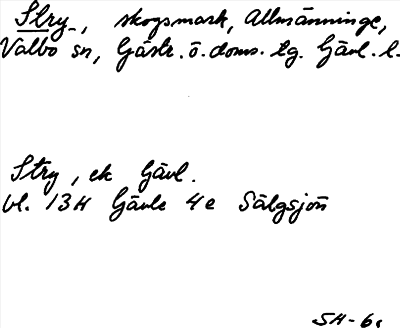 Stry, skogsmark, Allmänninge,
Valbo sn, Gästr. ö. doms. tg. Gävl. l.
Stry, ek Gävl.
bl. 13H Gävle 4e Sälgsjön
SH-61